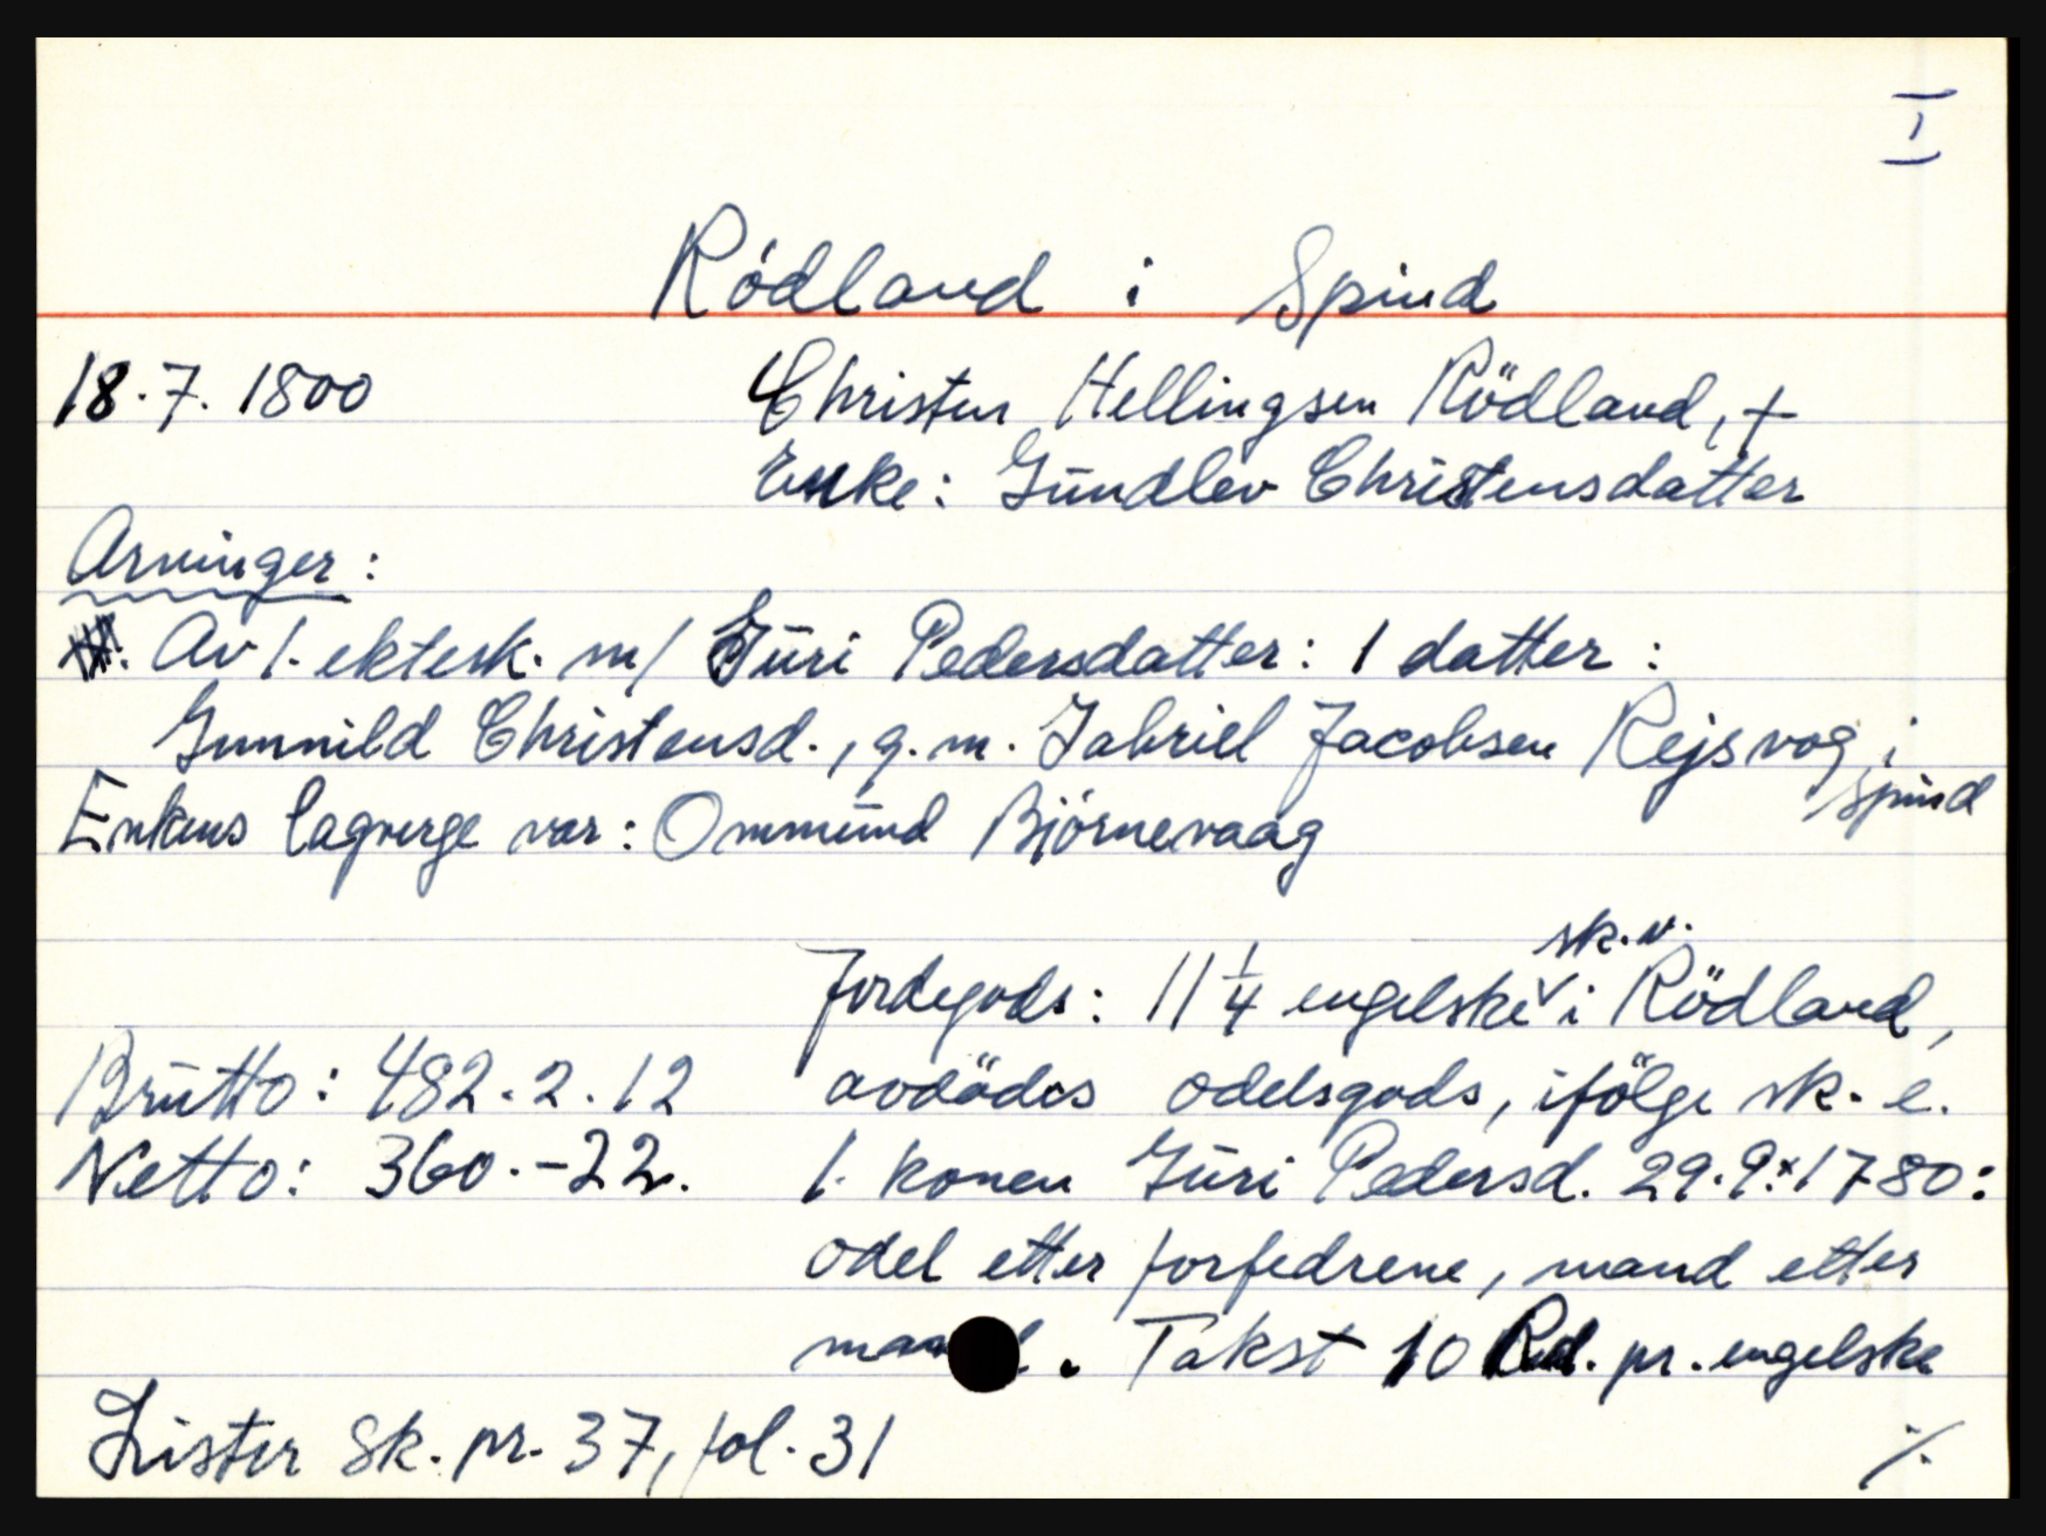 I
Rödland i Spind
18.7.1800
Christen Hellingsen Rödland, +
Enke: Gundlev Christensdatter
Arvinger:
Av 1. ektesk. m/ Guri Pedersdatter: 1 datter:
Gunnild Christensd., g.m. Gabriel Jacobsen Rejsvog i
Spind
Enkens lagverge var: Ommund Björnevaag
sk.v.
Jordegods: 11 1/4 engelske v i Rödland,
Brutto: 482.2.12
avdödes odelsgods, ifölge sk. e.
Netto: 360.-22.
1. konen Guri Pedersd. 29.9.1780:
odel etter forfedrene, mand etter
mand. Takst 10 Rd. pr. engelske
Lister sk. pr. 37, fol. 31
./.